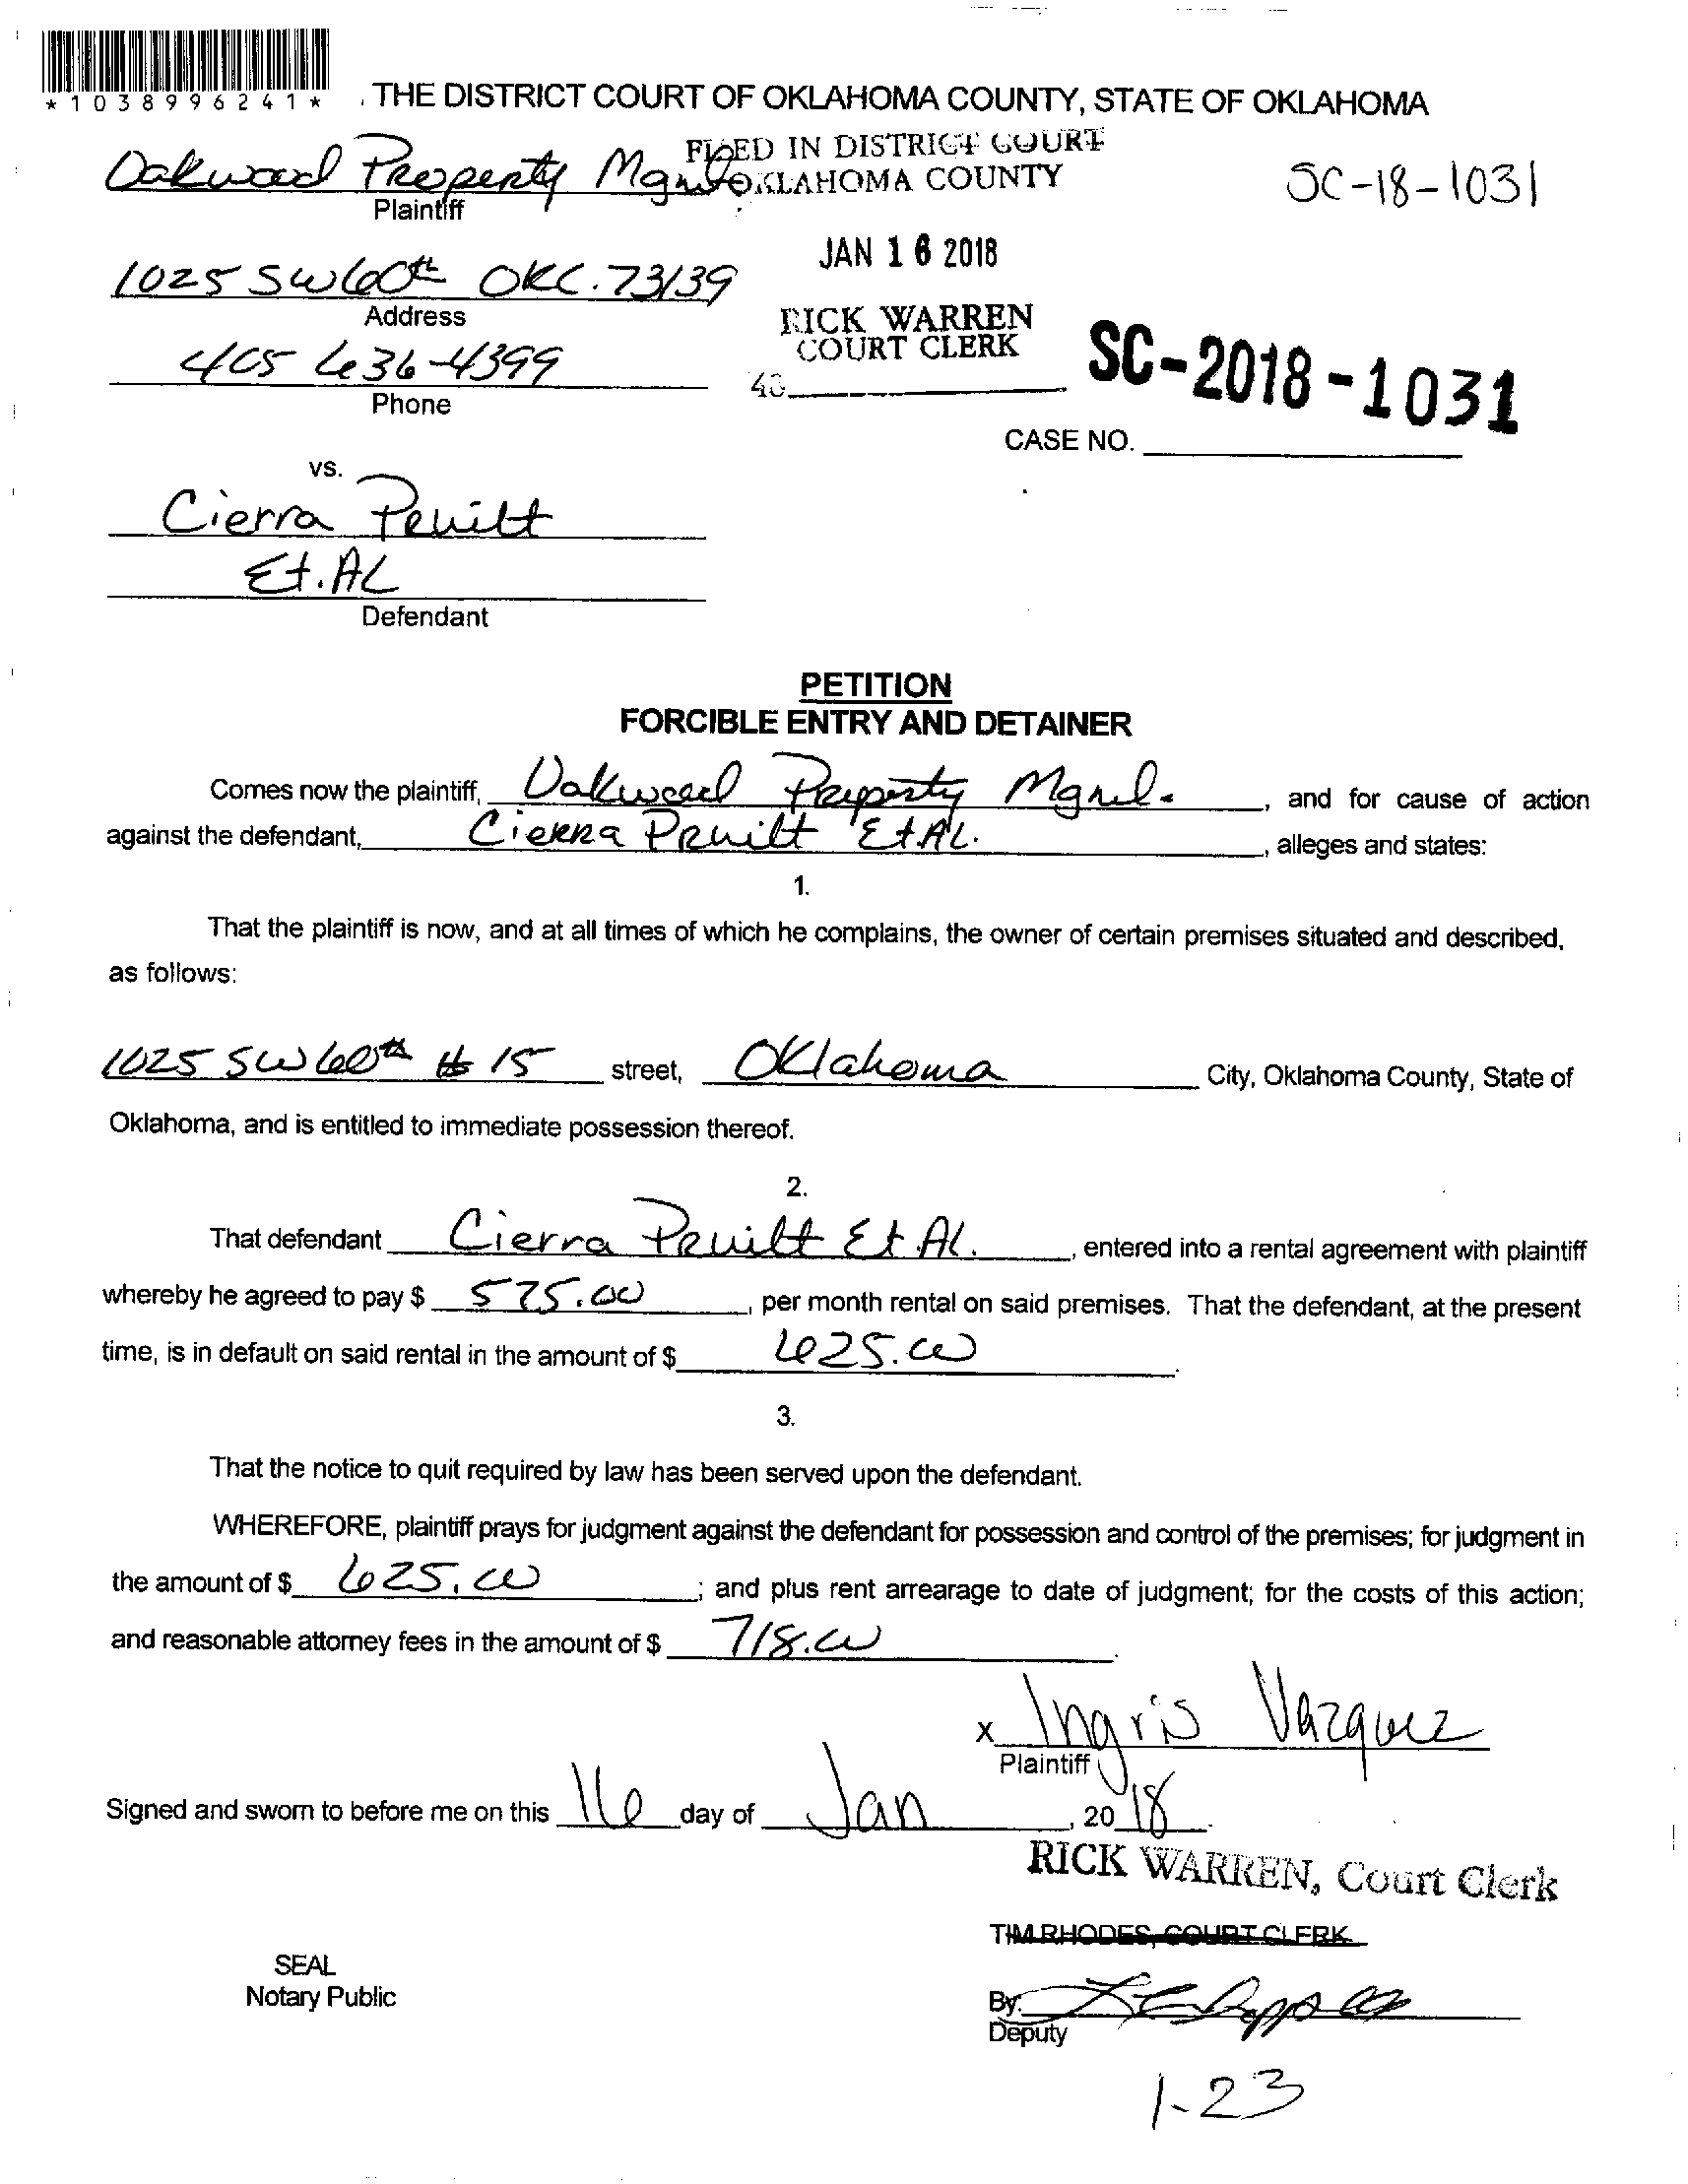 *1038996241*
THE DISTRICT COURT OF OKLAHOMA COUNTY, STATE OF OKLAHOMA
Oakwood Property Mgmt
FILED IN DISTRICT COURT
OKLAHOMA COUNTY
SC-18-1031
Plaintiff
JAN 16 2018
1025 SW 60th OKC. 73139
Address
RICK WARREN
COURT CLERK
405 636-4399
Phone
SC-2018-1031
CASE NO.
vs.
Cierra Pruitt
Et. AL
Defendant
PETITION
FORCIBLE ENTRY AND DETAINER
Comes now the plaintiff, Oakwood Property Mgmt. , and for cause of action
against the defendant, Cierra Pruitt Et AL. , alleges and states:
1.
That the plaintiff is now, and at all times of which he complains, the owner of certain premises situated and described,
as follows:
1025 SW 60th # 15 street, Oklahoma City, Oklahoma County, State of
Oklahoma, and is entitled to immediate possession thereof.
2.
That defendant Cierra Pruitt Et AL. , entered into a rental agreement with plaintiff
whereby he agreed to pay $ 575.00 , per month rental on said premises. That the defendant, at the present
time, is in default on said rental in the amount of $ 625.00 .
3.
That the notice to quit required by law has been served upon the defendant.
WHEREFORE, plaintiff prays for judgment against the defendant for possession and control of the premises; for judgment in
the amount of $ 625.00 ; and plus rent arrearage to date of judgment; for the costs of this action;
and reasonable attorney fees in the amount of $ 718.00 .
x Ingris Vazquez
Plaintiff
Signed and sworn to before me on this 16 day of Jan , 20 18 .
RICK WARREN, Court Clerk
TIM RHODES, COURT CLERK
SEAL
Notary Public
By:
Deputy
1-23